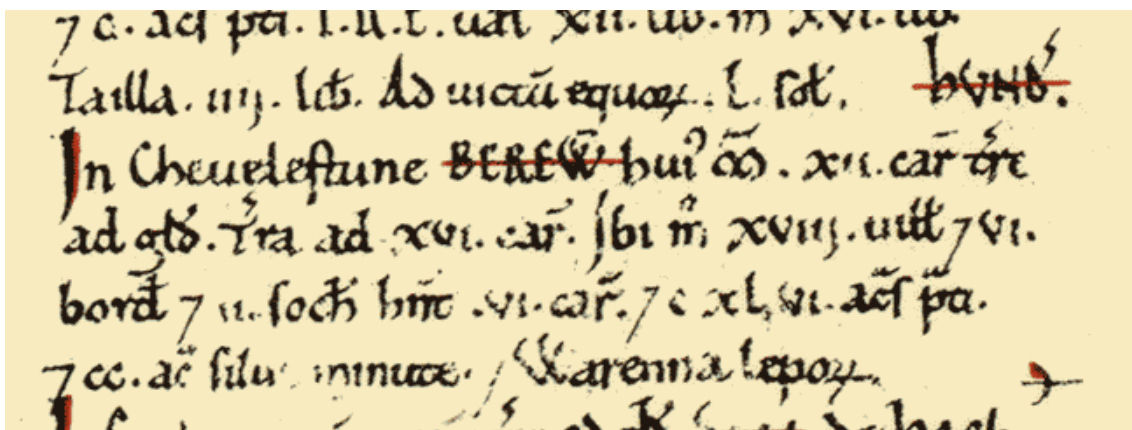 7 c. ac̃s p̃ti. T.R.E. ual xii. lib. m̊ xvi. lib.
Tailla. iiij. lib̃. Ad uictũ equoꝝ. L. sol̃. HVND̃.
In Cheuelestune BEREW̃ hui᾿ M̃. xii. car̃ tr̃e
ad gld̃. Tr̃a ad xvi. car̃. Ibi m̊ xviij. uill̃ 7 vi.
bord̃ 7 ii. soch̃ hñt .vi. car̃. 7 c xl vi. ac̃s p̃ti.
7 cc. ac̃ silu minute. Warenna lepoꝝ.